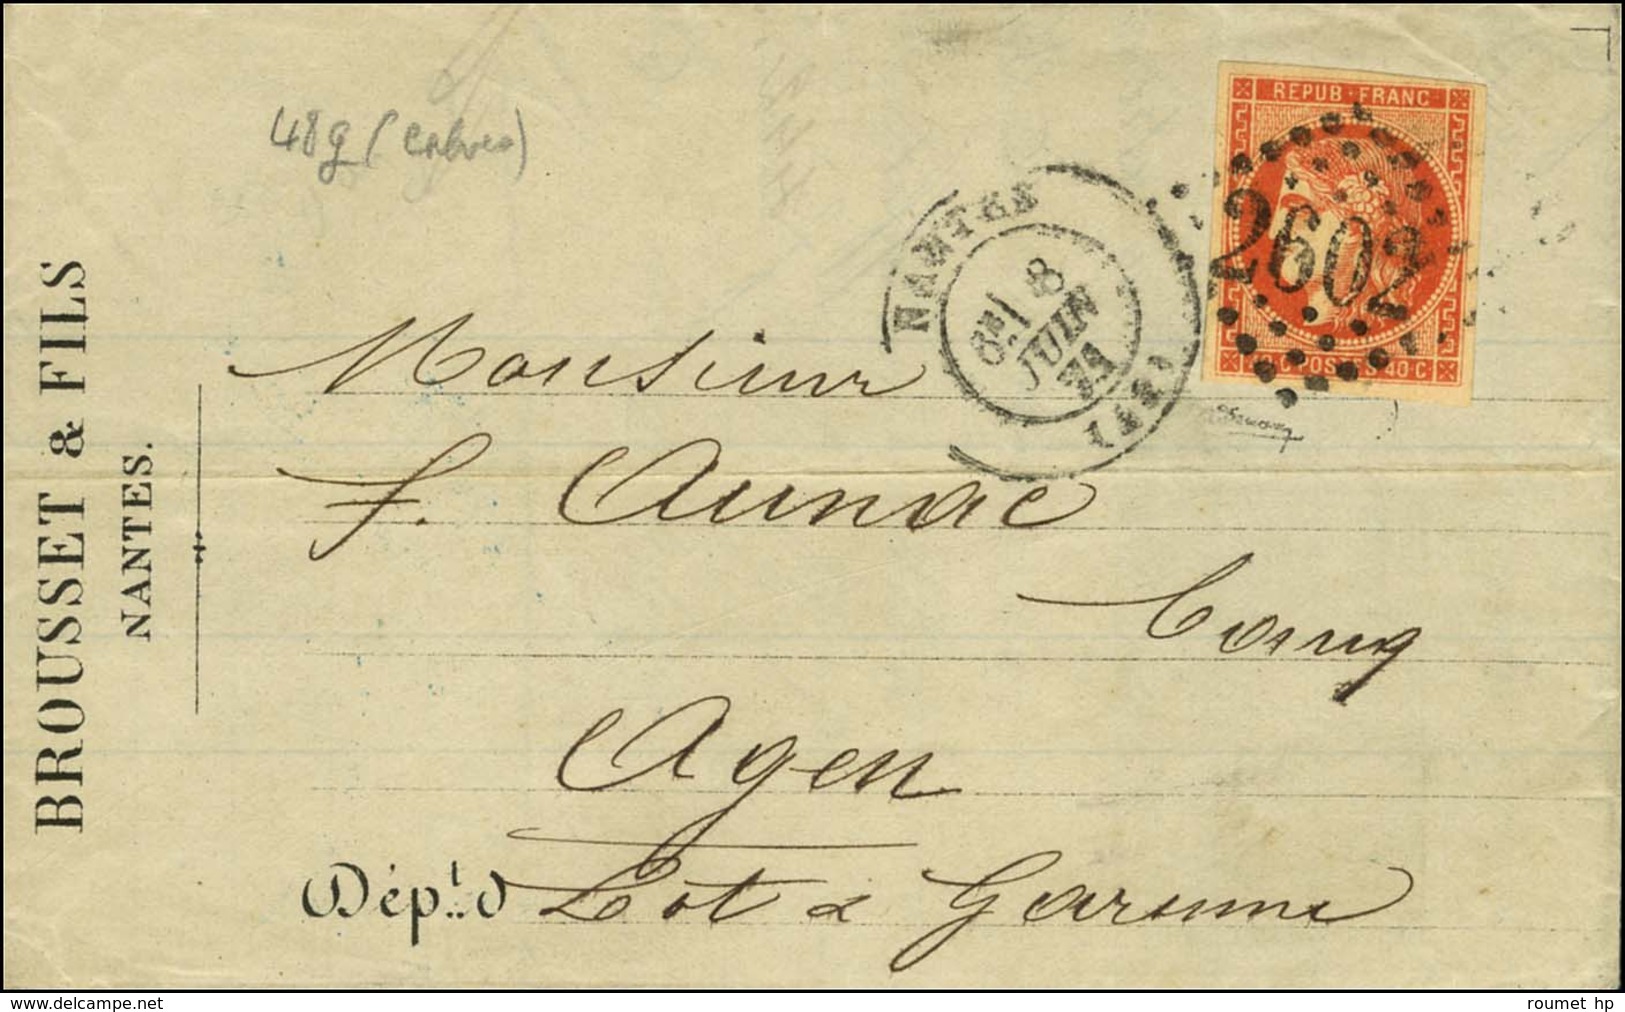 48g (
BROUSSET & FILS
NANTES.
REPUB · FRANC
2602
C. POSTES 40 C
NANTES
8
JUIN
71
(42)
Monsieur
F. Aunac
Agen
Dépt. d Lot & Garonne
www.delcampe.net
roumet hp